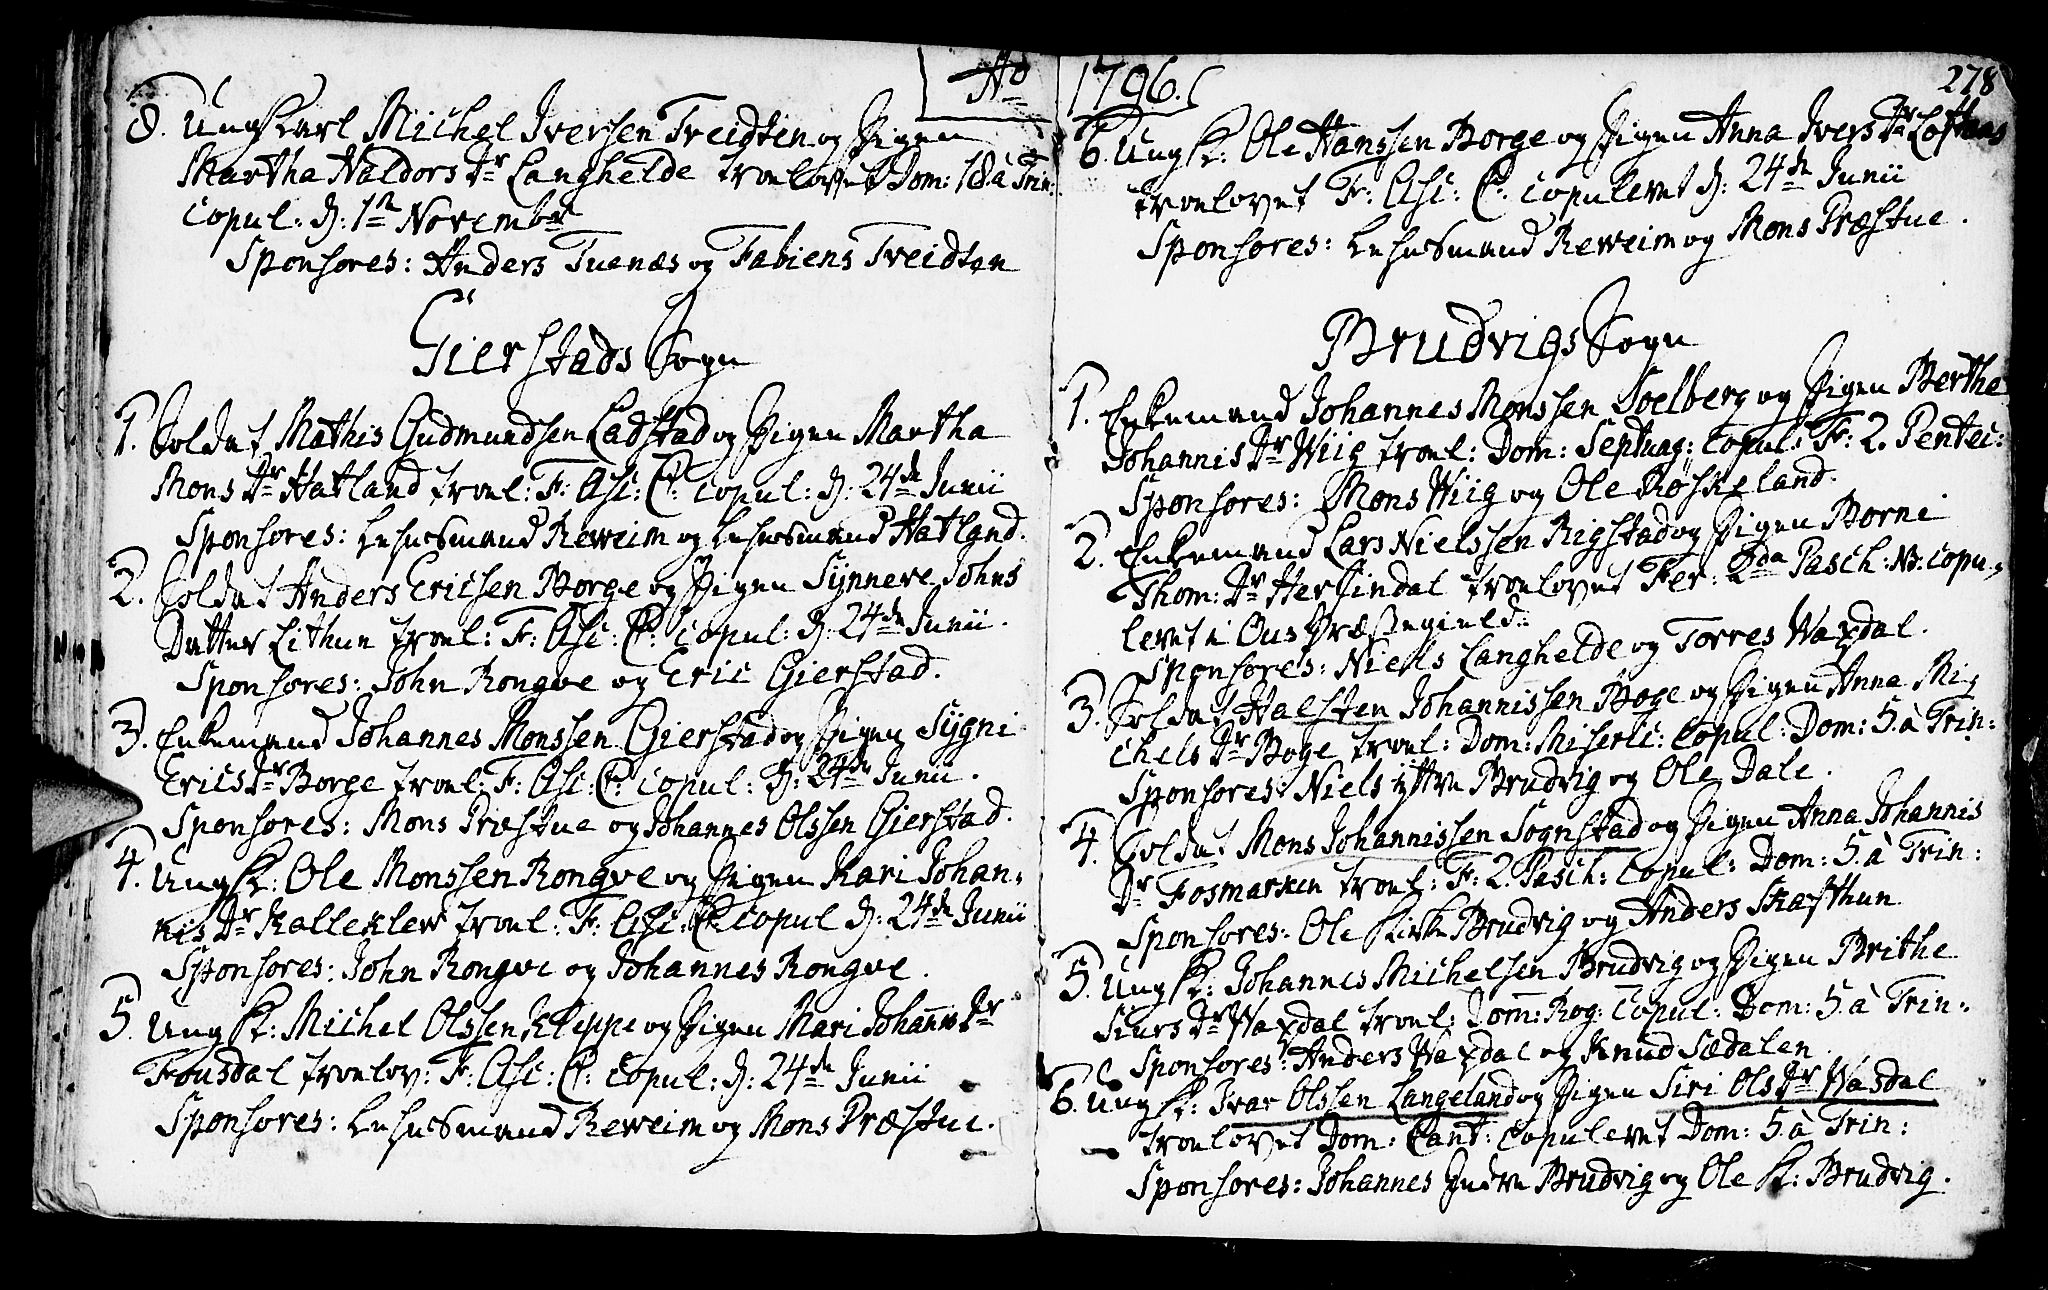 Ao
8. Ungkarl Michel Iversen Tveidten og Pigen
Martha Haldors Dr Langhelde troelovet Dom: 18 à Trin:
copul: d: 1te Novembr
Sponsores: Anders Tuenæs og Fabiens Tveidten
Gierstads Sogn
1. Soldat Mathis Gudmundsen Ladstad og Pigen Martha
Mons Dr Hatland troel: F: Asc: C: copul: d: 24de Junii
Sponsores: Lehnsmand Reweim og Lehnsmand Hatland.
2. Soldat Anders Ericsen Borge og Pigen Synneve Johns
Datter Lithun troel: F: Asc: C: copul: d: 24de Junii.
Sponsores: John Rongve og Eric Gierstad.
3. Enkemand Johannes Monssen Gierstad og Pigen Sygni
Erics Dr Borge troel: F: Asc: C: copul: d: 24de Junii.
Sponsores: Mons Præstue og Johannes Olssen Gierstad.
4. Ung K: Ole Monssen Rongve og Pigen Kari Johan-
nis Dr Kalleklev troel: F: Asc: C: copul d: 24de Junii
Sponsores: John Rongve og Johannes Rongve.
5. Ung K: Michel Olssen Kleppe og Pigen Mari Johannis Dr
Fousdal troelov: F: Asc: C: copul: d: 24de Junii
Sponsores: Lehnsmand Reweim og Mons Præstue.
1796.
278
6. Ung K: Ole Hanssen Borge og Pigen Anna Ivers Dr Lofthaas
troelovet F: Asc: C: copulevet d: 24de Junii
Sponsores: Lehnsmand Reweim og Mons Præstue.
Brudvigs Sogn
1. Enkemand Johannes Monssen Soelberg og Pigen Berthe
Johannis Dr Wiig troel: Dom: Septuag: Copul: Fr: 2. Pentec:
Sponsores: Mons Wiig og Ole Røskeland.
2. Enkemand Lars Nielssen Rigstad og Pigen Borni
Thom: Dr Herfindal troelovet Fer: 2da Pasch: NB. copu-
levet i Ous Præstegield.
Sponsores: Niels Langhelde og Torres Waxdal.
3. Soldat Halsten Johannissen Boge og Pigen Anna Mi-
chels Dr Boge troel: Dom: Miseric: Copul: Dom: 5. à Trin:
Sponsores: Niels ijttre Brudvig og Ole Dale.
4. Soldat Mons Johannissen Sognstad og Pigen Anna Johannis
Dr Fosmarken troel: F: 2. Pasch: Copul: Dom: 5. à Trin:
Sponsores: Ole Kirke Brudvig og Anders Skafthun
5. Ung K: Johannes Michelsen Brudvig og Pigen Brithe
Siurs Dr Waxdal troel: Dom: Rog: Copul: Dom: 5. à Trin:
Sponsores: Anders Waxdal og Knud Sædalen.
6. Ung K: Ivar Olssen Langeland og Pigen Siri Ols Dr Wasdal
troelovet Dom: Cant: Copulevet Dom: 5. à Trin:
Sponsores: Johannes Indre Brudvig og Ole K: Brudvig.